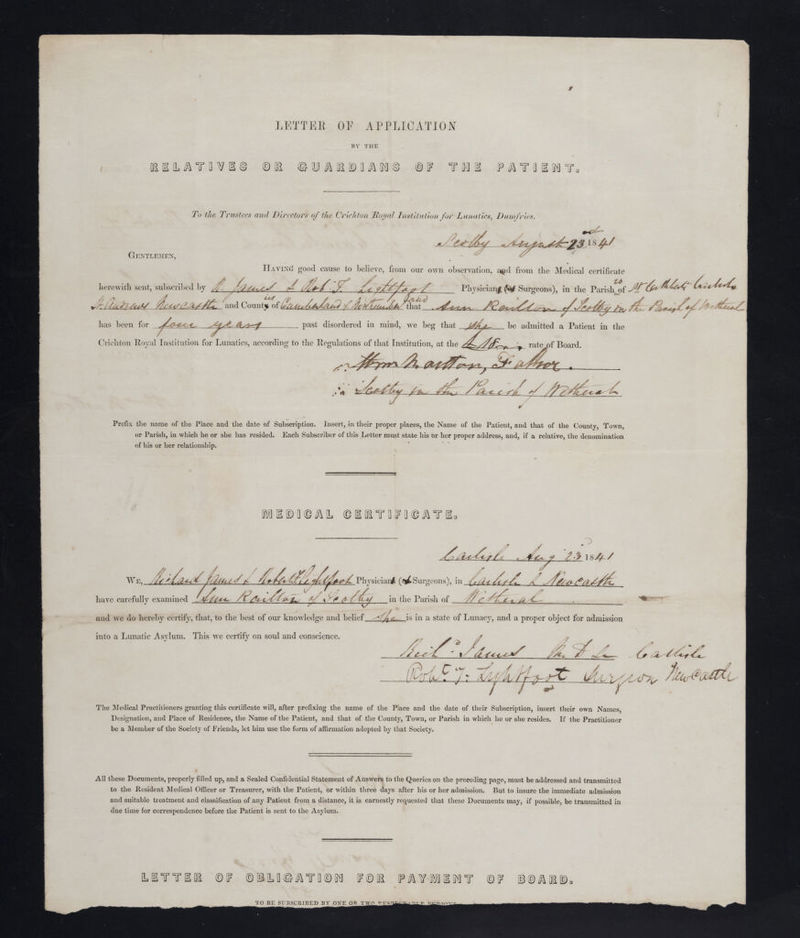 LETTER OF APPLICATION
BY THE
RELATIVES OR GUARDIANS OF THE PATIENT.
To the Trustees and Directors of the Crichton Royal Institution for Lunatics, Dumfries.
Scotby August 23rd 1841
GENTLEMEN,
HAVING good cause to believe, from our own observation, and from the Medical certificate
herewith sent, subscribed by R James & Robt T. Lightfoot Physicians (& Surgeons), in the Parish of St Cuthberts Carlisle
St Andrews Newcastle and County of Cumberland & Northumberland that Ann Railton of Scotby in the Parish of Wetheral
has been for four years past disordered in mind, we beg that she be admitted a Patient in the
Crichton Royal Institution for Lunatics, according to the Regulations of that Institution, at the rate of Board.
Father.
Scotby in the Parish of Wetheral
Prefix the name of the Place and the date of Subscription. Insert, in their proper places, the Name of the Patient, and that of the County, Town,
or Parish, in which he or she has resided. Each Subscriber of this Letter must state his or her proper address, and, if a relative, the denomination
of his or her relationship.
MEDICAL CERTIFICATE.
Carlisle Aug 23 1841
WE, Richard James & Robert T. Lightfoot Physicians (& Surgeons), in Carlisle & Newcastle
have carefully examined Ann Railton of Scotby in the Parish of Wetheral
and we do hereby certify, that, to the best of our knowledge and belief she is in a state of Lunacy, and a proper object for admission
into a Lunatic Asylum. This we certify on soul and conscience.
Richd James M.D. Carlisle
Robt. T: Lightfoot Surgeon Newcastle
The Medical Practitioners granting this certificate will, after prefixing the name of the Place and the date of their Subscription, insert their own Names,
Designation, and Place of Residence, the Name of the Patient, and that of the County, Town, or Parish in which he or she resides. If the Practitioner
be a Member of the Society of Friends, let him use the form of affirmation adopted by that Society.
All these Documents, properly filled up, and a Sealed Confidential Statement of Answers to the Queries on the preceding page, must be addressed and transmitted
to the Resident Medical Officer or Treasurer, with the Patient, or within three days after his or her admission. But to insure the immediate admission
and suitable treatment and classification of any Patient from a distance, it is earnestly requested that these Documents may, if possible, be transmitted in
due time for correspondence before the Patient is sent to the Asylum.
LETTER OF OBLIGATION FOR PAYMENT OF BOARD.
TO BE SUBSCRIBED BY ONE OR TWO